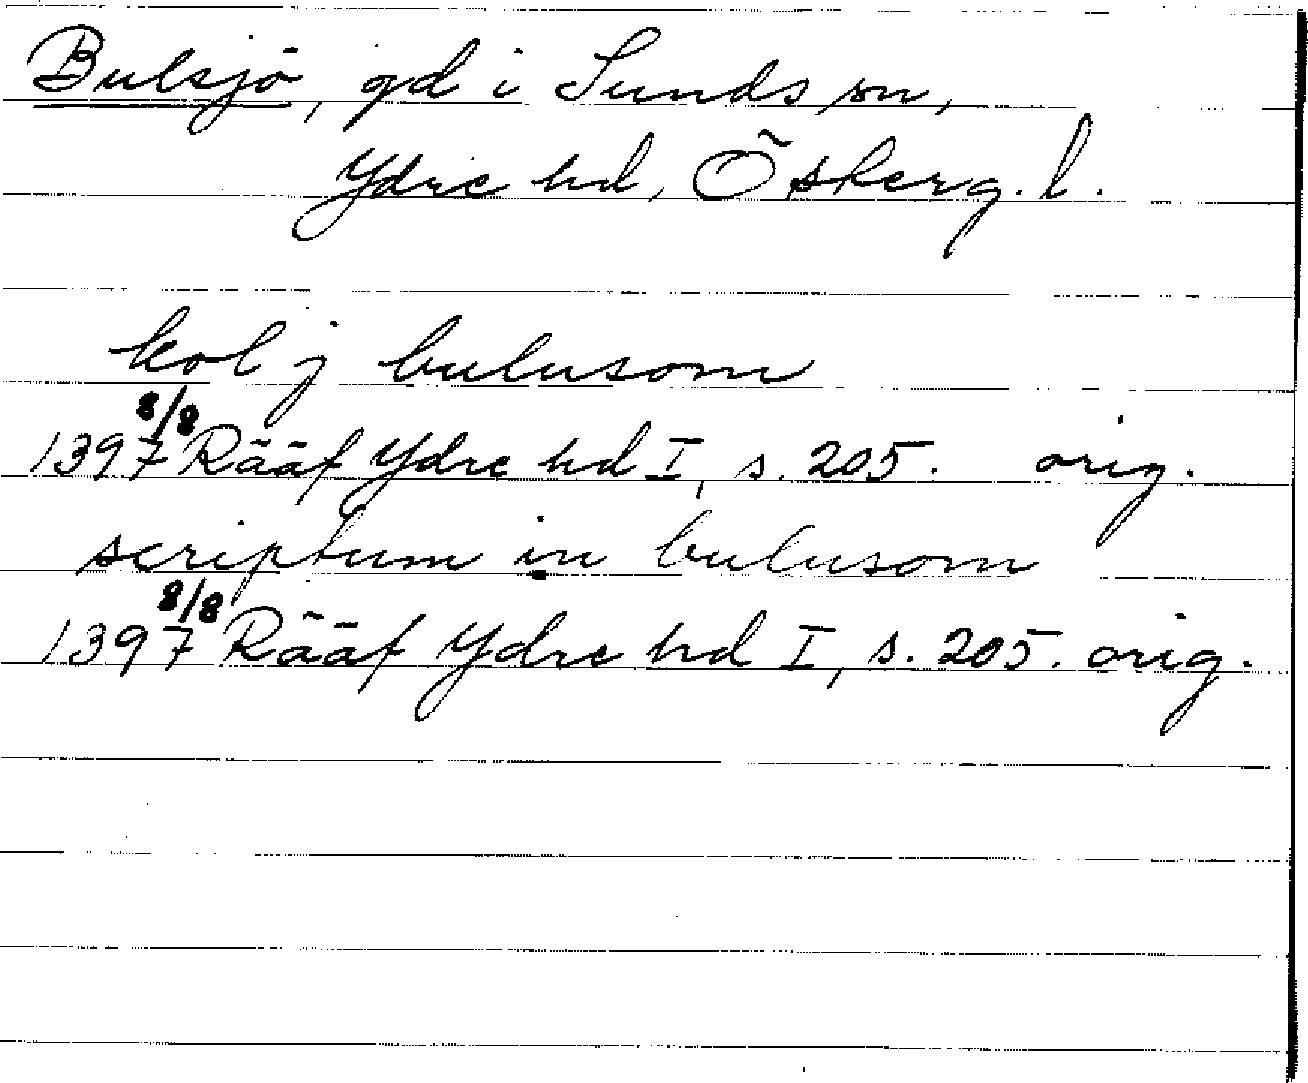 Bulsjö, gd i Sunds sn,
Ydre hd, Östergl.
kol j bulusom
1397 8/8 Rääf Ydre hd I, s. 205. orig.
scriptum in bulusom
1397 8/8 Rääf Ydre hd I, s. 205. orig.